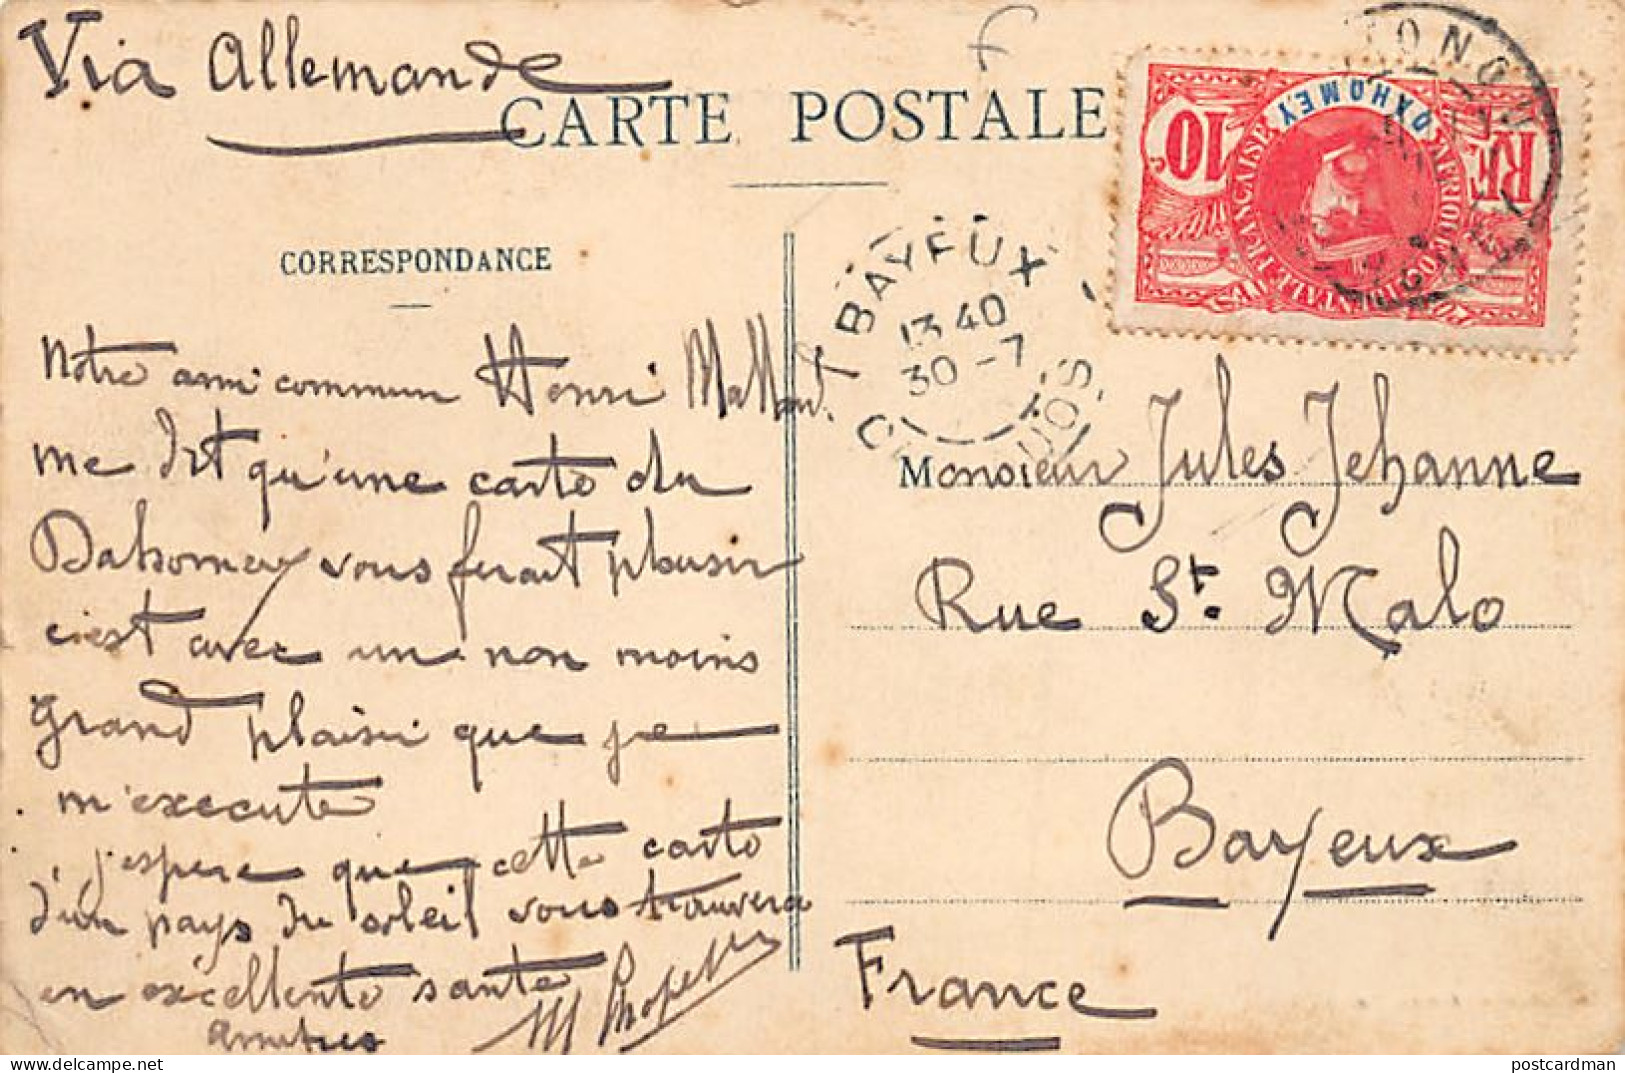 Via Allemande
CARTE POSTALE
CORRESPONDANCE
DAHOMEY
10 c.
RF
AFRIQUE OCCIDENTALE FRANÇAISE
BAYEUX
13 40
30 - 7
CALVADOS
Notre ami commun Henri
me dit qu'une carte du
Dahomey vous ferait plaisir
c'est avec un non moins
grand plaisir que je
m'exécute
j'espère que cette carte
d'un pays du soleil vous trouvera
en excellente santé
Amitiés
Monsieur Jules Jehanne
Rue St. Malo
Bayeux
France
delcampe.net
postcardman